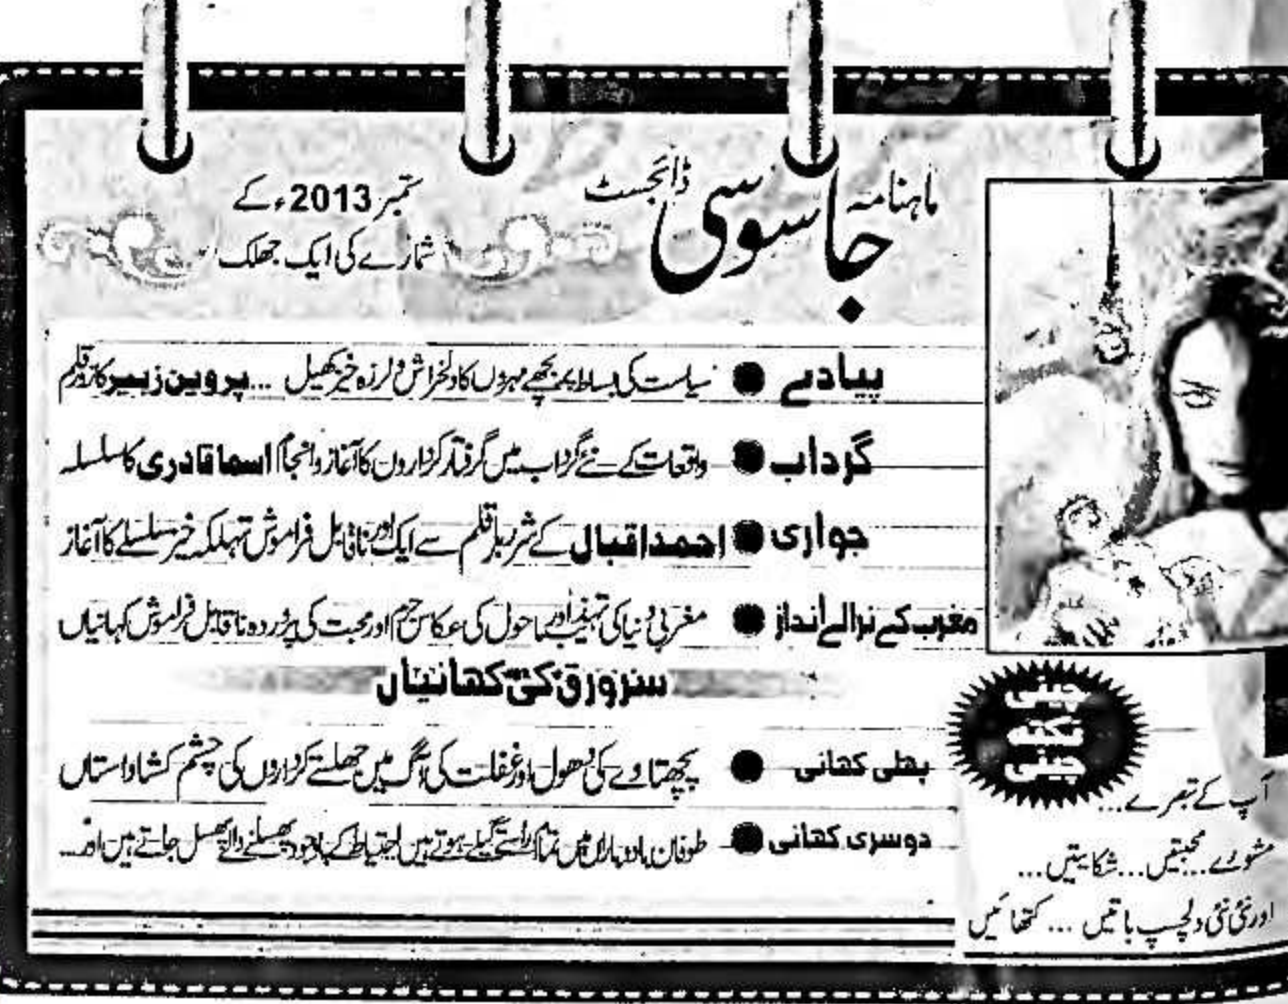 ماہنامہ جاسوسی ڈائجسٹ
ستمبر 2013ء کے
شمارے کی ایک جھلک
پیادے ● سیاست کی بساط پر بچھے مہروں کا دلخراش و لرزہ خیز کھیل ... پروین زبیر کا زور قلم
گرداب ● واقعات کے نئے گرداب میں گرفتار کرداروں کا آغاز و انجام اسما قادری کا سلسلہ
جواری ● احمد اقبال کے شرربار قلم سے ایک اور ناقابل فراموش تہلکہ خیز سلسلے کا آغاز
مغرب کے نرالے انداز ● مغربی دنیا کی تہذیب اور ماحول کی عکاس جرم اور محبت کی پروردہ ناقابل فراموش کہانیاں
سرورق کی کہانیاں
پہلی کہانی ● پچھتاوے کی دھول اور غفلت کی آگ میں جھلستے کرداروں کی چشم کشا داستاں
دوسری کہانی ● طوفان باد و باراں میں تمام راستے گیلے ہوتے ہیں احتیاط کے باوجود پھسلنے والے پھسل جاتے ہیں اور...
چینی
نکتہ
چینی
آپ کے تبصرے...
مشورے... محبتیں... شکایتیں...
اور نئی نئی دلچسپ باتیں ... کتھائیں